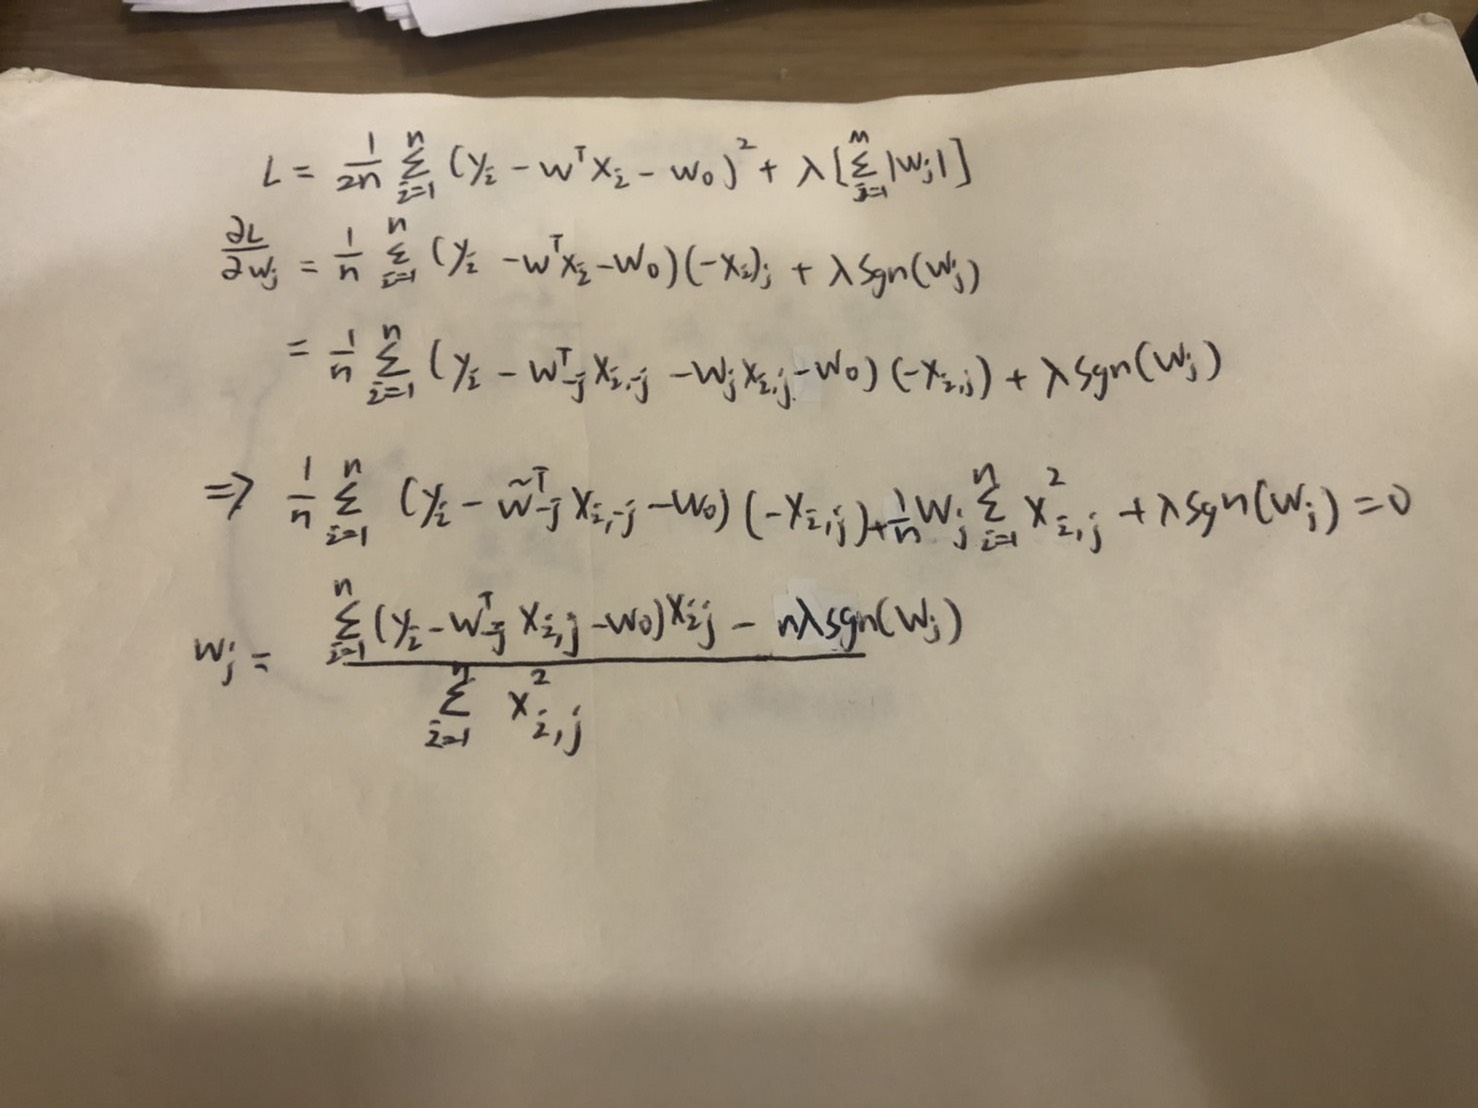 L = \frac{1}{2n} \sum_{i=1}^{n} (y_i - w^T x_i - w_0)^2 + \lambda [\sum_{j=1}^{m} |w_j|]
\frac{\partial L}{\partial w_j} = \frac{1}{n} \sum_{i=1}^{n} (y_i - w^T x_i - w_0)(-x_i)_j + \lambda sgn(w_j)
= \frac{1}{n} \sum_{i=1}^{n} (y_i - w_{-j}^T x_{i,-j} - w_j x_{i,j} - w_0)(-x_{i,j}) + \lambda sgn(w_j)
\Rightarrow \frac{1}{n} \sum_{i=1}^{n} (y_i - \tilde{w}_{-j}^T x_{i,-j} - w_0)(-x_{i,j}) + \frac{1}{n} w_j \sum_{i=1}^{n} x_{i,j}^2 + \lambda sgn(w_j) = 0
w_j = \frac{\sum_{i=1}^{n} (y_i - w_{-j}^T x_{i,j} - w_0) x_{ij} - n\lambda sgn(w_j)}{\sum_{i=1}^{n} x_{i,j}^2}